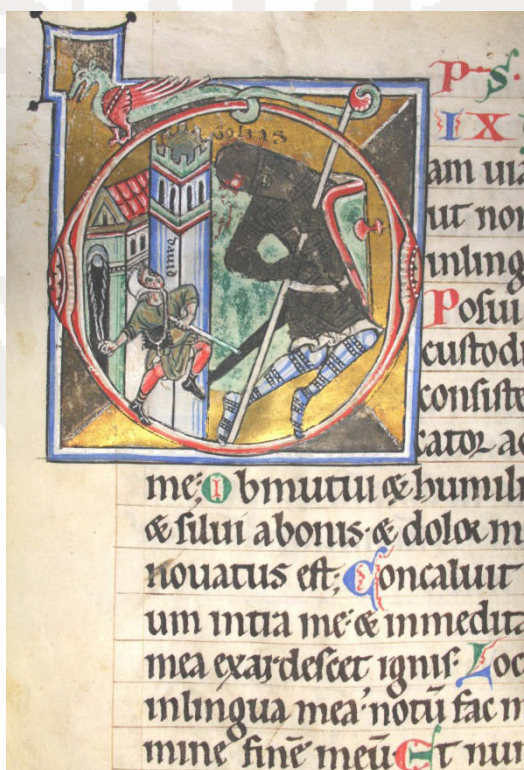 P·S·
IX
golias
am uiá
dauid
ut non
inling
Posui
custodi
consiste
cator ad
me; Obmutui & humili
& silui abonis· & dolor m
nouatus est; Concaluit
um intra me· & inmedita
mea exardescet ignis· Loc
inlingua mea· notū fac m
mine finē meū· Et nu